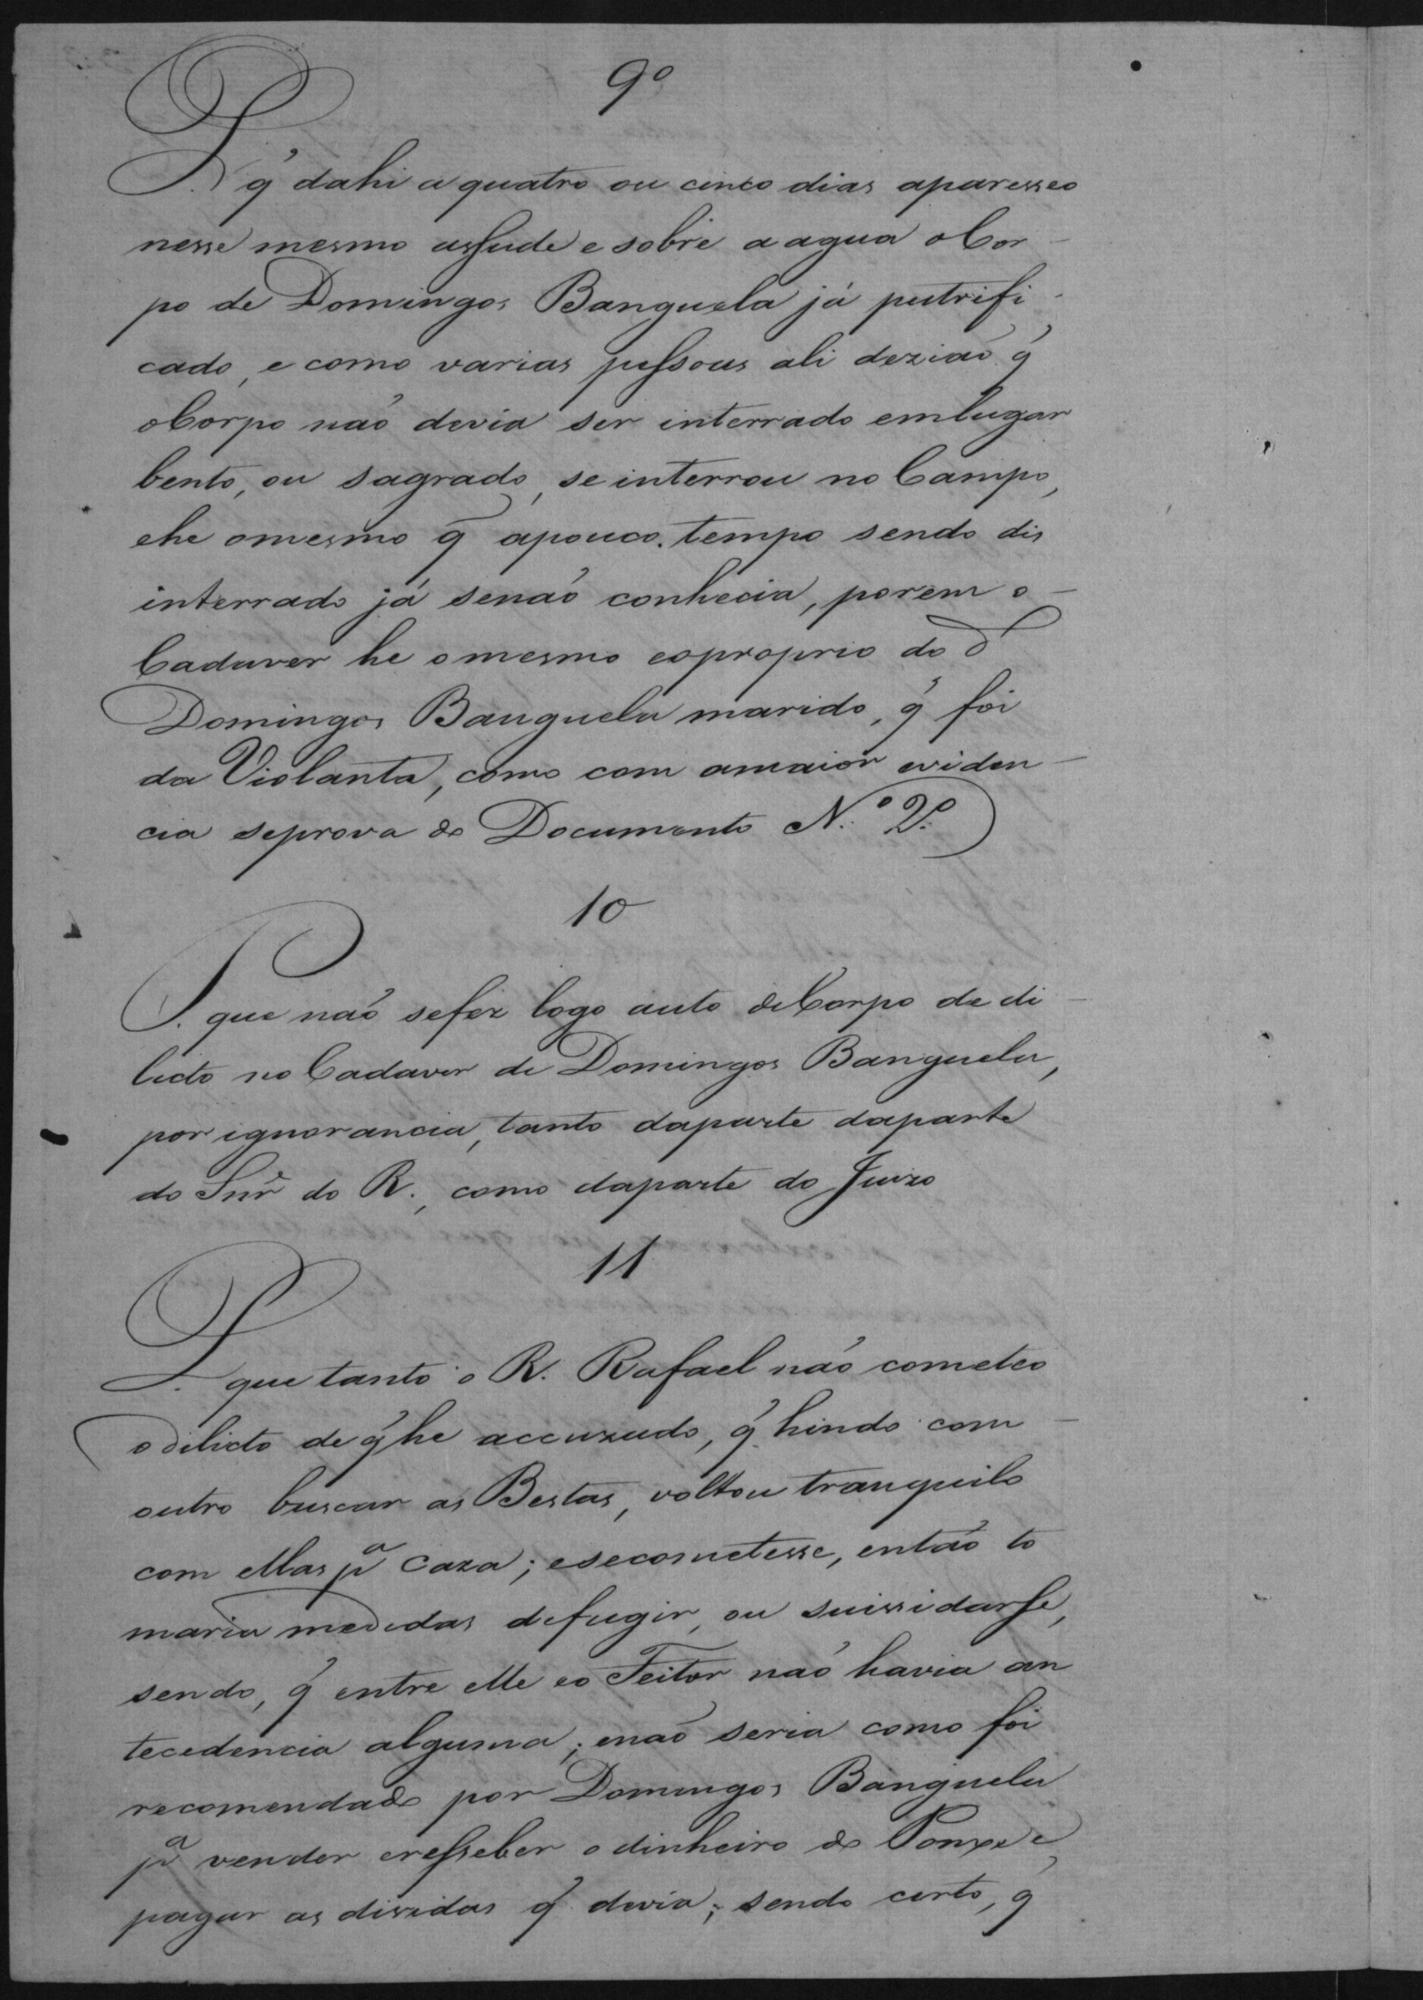 9º
P. q̃ dahi a quatro ou cinco dias aparesseo
nesse mesmo assude e sobre a agua o Cor-
po de Domingos Banguela já putrifi-
cado, e como varias pessoas ali dezião q̃
o Corpo não devia ser interrado em lugar
bento, ou sagrado, se interrou no Campo,
e he o mesmo q̃ apouco tempo sendo dis
interrado já se não conhecia, porem o-
Cadaver he o mesmo e o proprio do d
Domingos Banguela marido, q̃ foi
da Violanta, como com a maior eviden-
cia se prova do Documento N.º 2º
10
P. que não se fez logo auto de Corpo de di-
licto no Cadaver de Domingos Banguela,
por ignorancia, tanto da parte da parte
do Snr̃ do R., como da parte do Juizo
11
P. que tanto o R. Rafael não cometeo
o dilicto de q̃ he accuzado, q̃ hindo com-
outro buscar as Bestas, voltou tranquilo
com ellas pª caza; e se cometesse, então to
maria medidas de fugir, ou suissidarse,
sendo, q̃ entre elle e o Feitor não havia an
tecedencia alguma; e não seria como foi
recomendado por Domingos Banguela
pª vender e resseber o dinheiro do Ponxe e
pagar as dividas q̃ devia; sendo certo, q̃